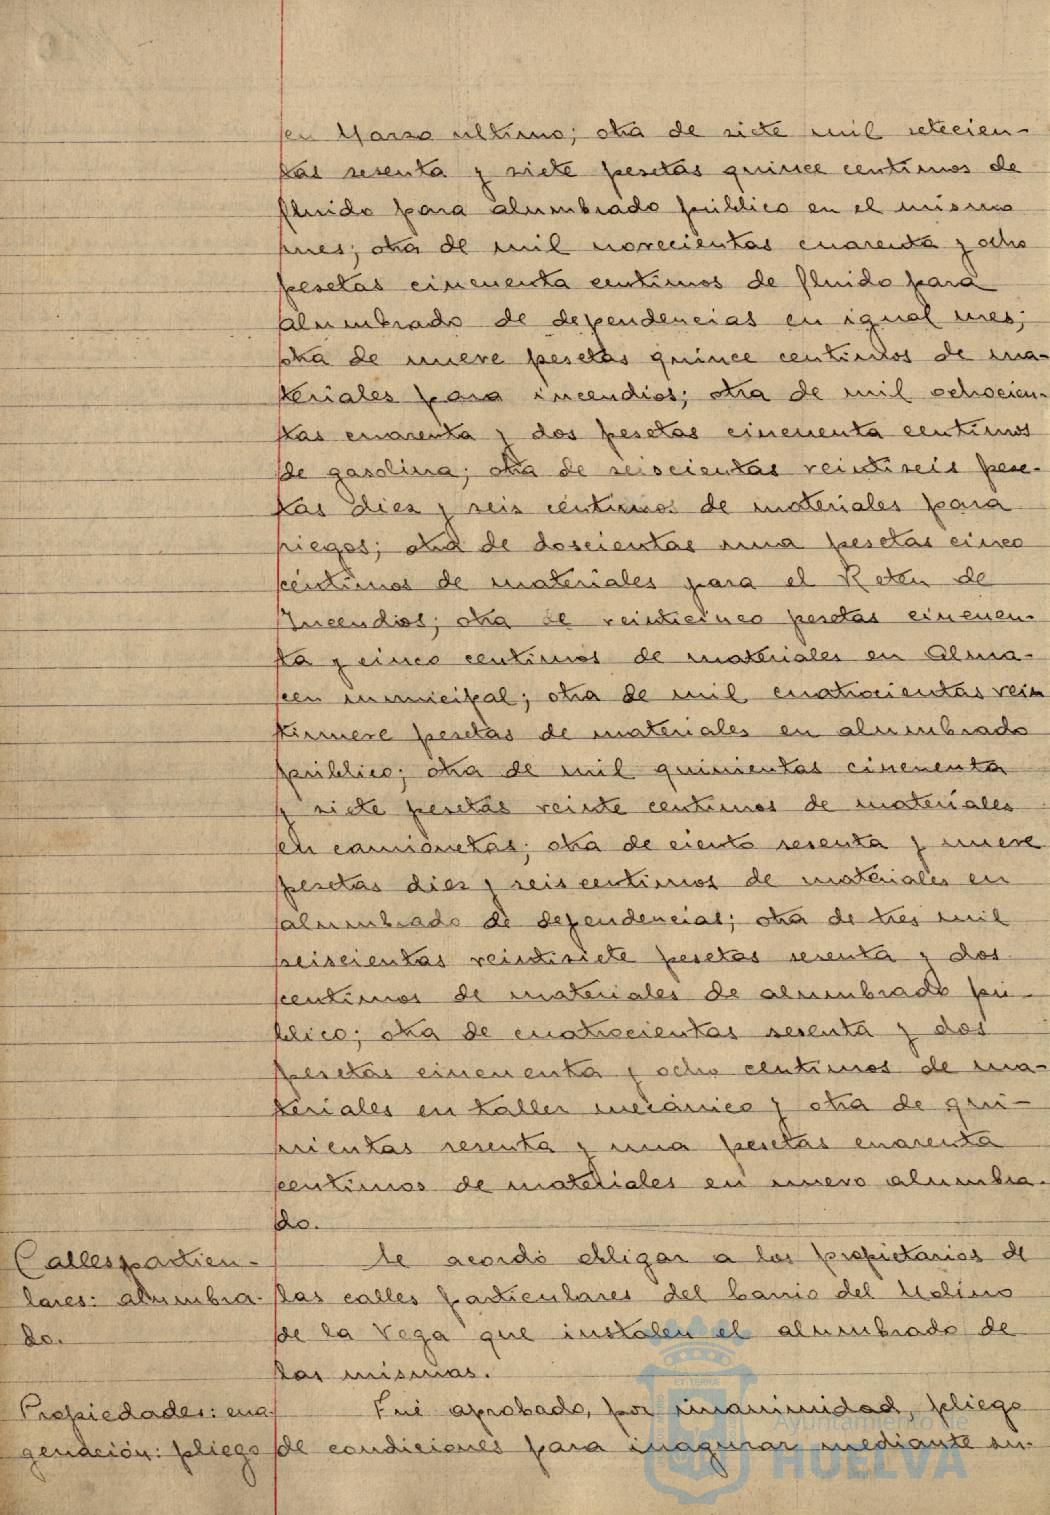 en Marzo ultimo; otra de siete mil setecien-
tas sesenta y siete pesetas quince centimos de
fluido para alumbrado público en el mismo
mes; otra de mil novecientas cuarenta y ocho
pesetas cincuenta centimos de fluido para
alumbrado de dependencias en igual mes;
otra de nueve pesetas quince centimos de ma-
teriales para incendios; otra de mil ochocien-
tas cuarenta y dos pesetas cincuenta centimos
de gasolina; otra de seiscientas veintiseis pese-
tas diez y seis centimos de materiales para
riegos; otra de doscientas una pesetas cinco
céntimos de materiales para el Reten de
Incendios; otra de veinticinco pesetas cincuen-
ta y cinco centimos de materiales en Alma-
cen municipal; otra de mil cuatrocientas vein
tinueve pesetas de materiales en alumbrado
público; otra de mil quinientas cincuenta
y siete pesetas veinte centimos de materiales
en camionetas; otra de ciento sesenta y nueve
pesetas diez y seis centimos de materiales en
alumbrado de dependencias; otra de tres mil
seiscientas veintisiete pesetas sesenta y dos
centimos de materiales de alumbrado pú-
blico; otra de cuatrocientas sesenta y dos
pesetas cincuenta y ocho centimos de ma-
teriales en taller mecánico y otra de qui-
nientas sesenta y una pesetas cuarenta
centimos de materiales en nuevo alumbra-
do.
Calles particu-
lares: alumbra-
do.
Se acordó obligar a los propietarios de
las calles particulares del barrio del Molino
de la Vega que instalen el alumbrado de
las mismas.
Propiedades: ena-
genación: pliego
Fué aprobado, por unanimidad, pliego
de condiciones para inagurar mediante su-
Ayuntamiento de
HUELVA